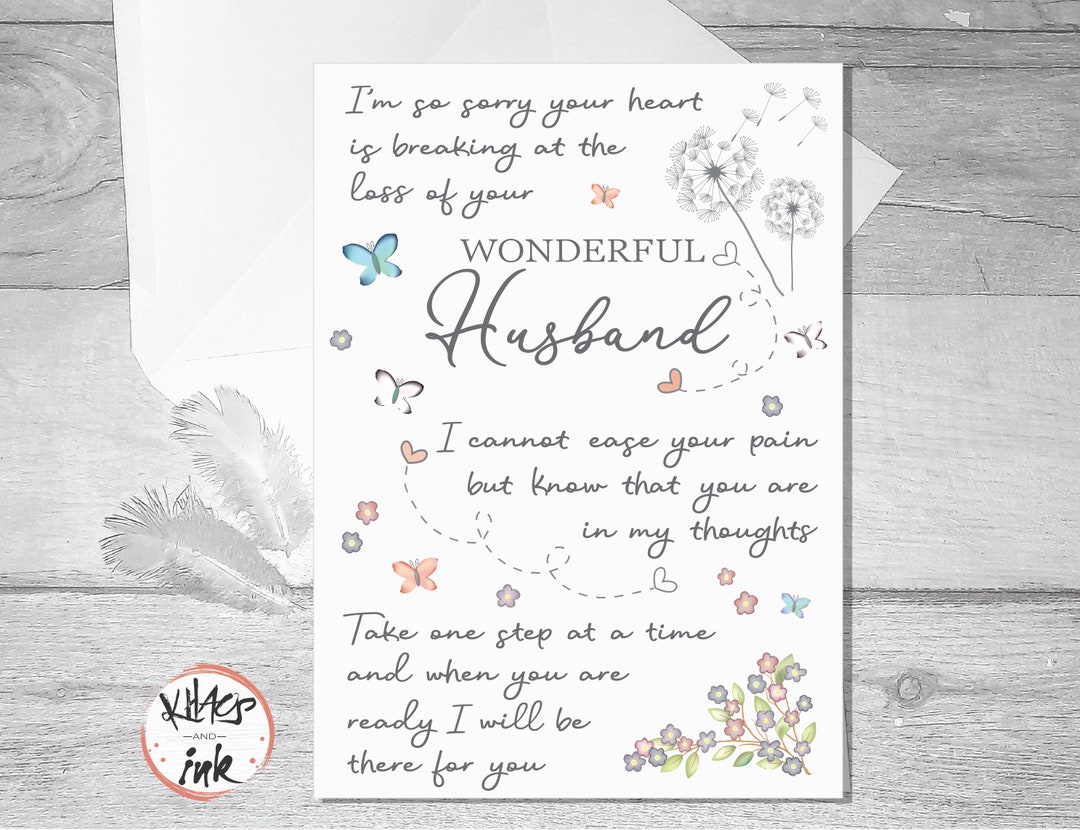 I'm so sorry your heart
is breaking at the
loss of your
WONDERFUL
Husband
I cannot ease your pain
but know that you are
in my thoughts
Take one step at a time
and when you are
ready I will be
there for you
KHAOS
-AND-
ink